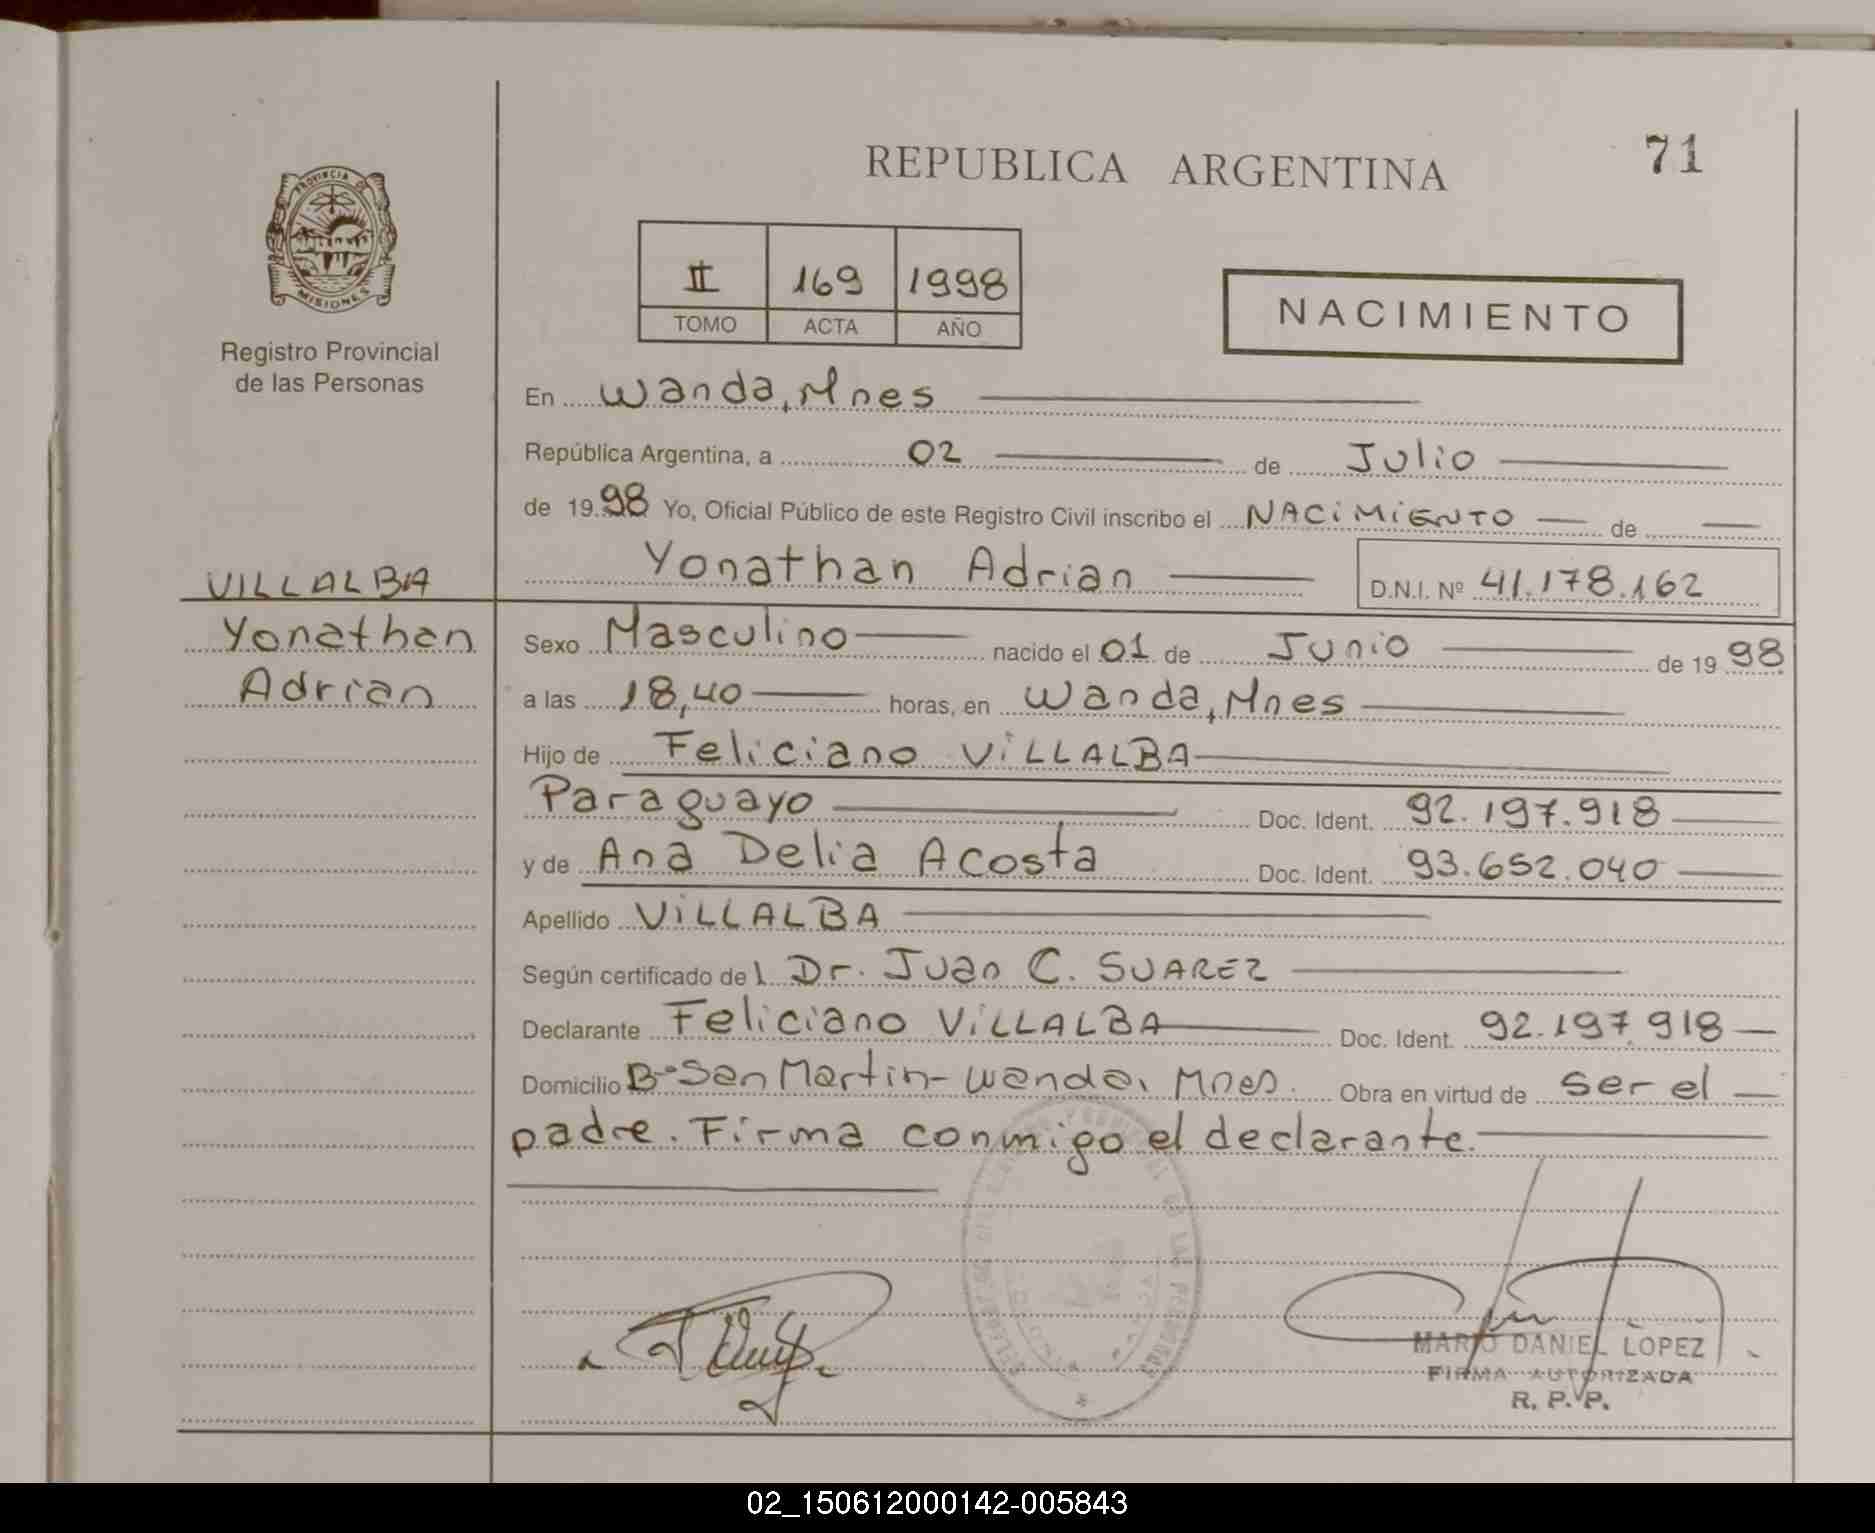 REPUBLICA ARGENTINA
71
PROVINCIA DE
MISIONES
Registro Provincial
de las Personas
II 169 1998
TOMO ACTA AÑO
NACIMIENTO
En Wanda, Mnes
República Argentina, a 02 de Julio
de 1998 Yo, Oficial Público de este Registro Civil inscribo el NACIMIENTO de
Yonathan Adrian D.N.I. Nº 41.178.162
VILLALBA
Yonathan
Adrian
Sexo Masculino nacido el 01 de Junio de 1998
a las 18,40 horas, en Wanda, Mnes
Hijo de Feliciano VILLALBA
Paraguayo Doc. Ident. 92.197.918
y de Ana Delia Acosta Doc. Ident. 93.652.040
Apellido VILLALBA
Según certificado del Dr. Juan C. SUAREZ
Declarante Feliciano VILLALBA Doc. Ident. 92.197.918
Domicilio Bº San Martin - Wanda, Mnes. Obra en virtud de ser el
padre. Firma conmigo el declarante.
MARIO DANIEL LOPEZ
FIRMA AUTORIZADA
R. P. P.
02_150612000142-005843